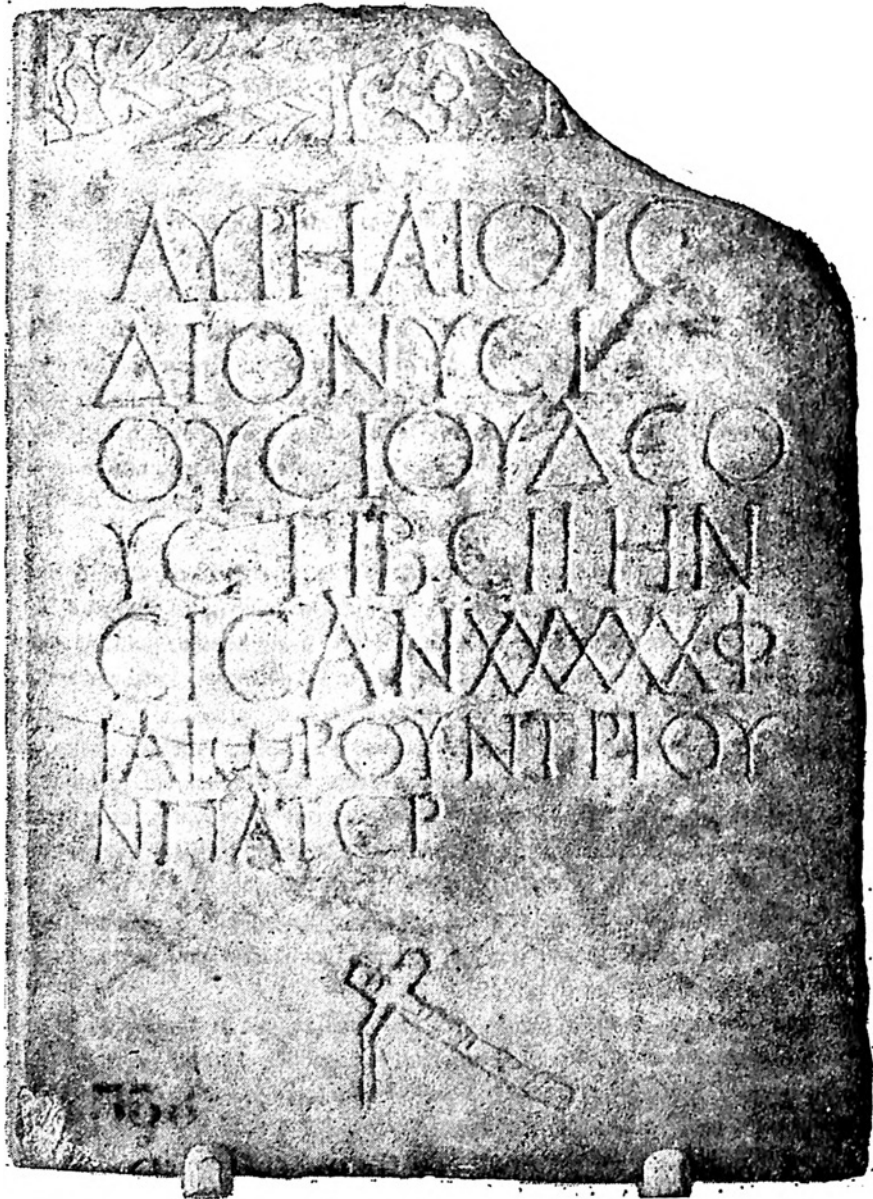 ΑΥΡΗΛΙΟΥϹ
ΔΙΟΝΥϹΙ
ΟΥϹΙΟΥΔΕΟ
ΥϹ·ΤΙΒΕΡΙΗΝ
ϹΙϹΑΝΧΧΧΧΦ
ΙΛΙΩΡΟΥΝΤΡΙΟΥ
ΝΠΑΤΕΡ